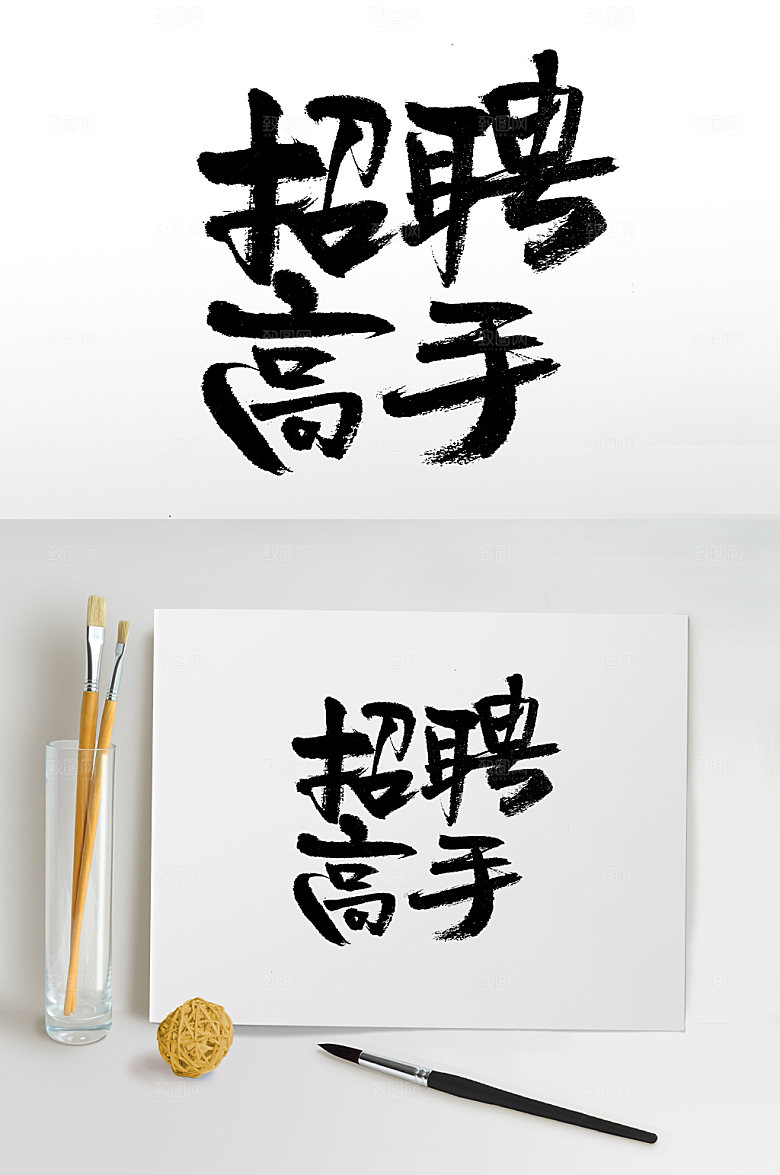 招聘
高手
招聘
高手